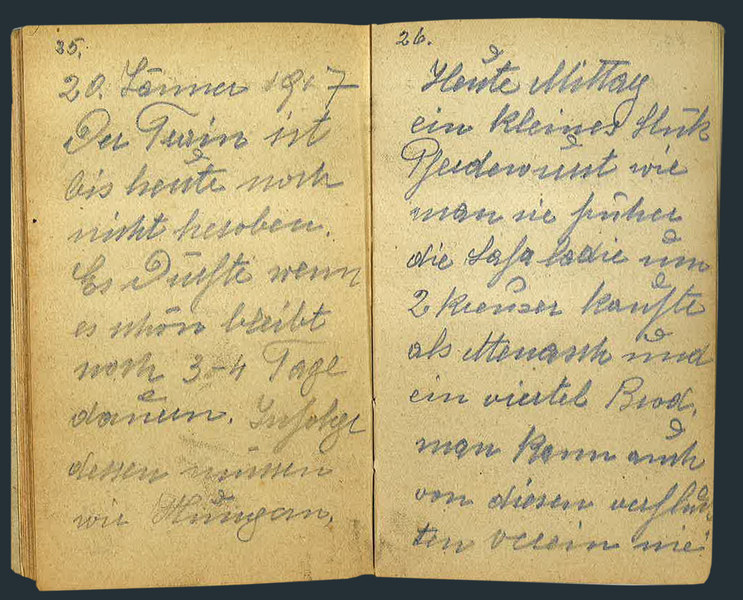 25.
20. Jänner 1917
Der Train ist
bis heute noch
nicht hesoben.
Es Dürfte wenn
es schön bleibt
noch 3-4 Tage
dauern. Infolge
dessen müssen
wir Hungern,
26.
Heute Mittag
ein kleines Stük
Pferdewurst wie
man sie früher
die Safaladie um
2 kreuzer kaufte
als Menasch und
ein viertel Brod,
man kann auch
von diesen verfluch
ten verein nie